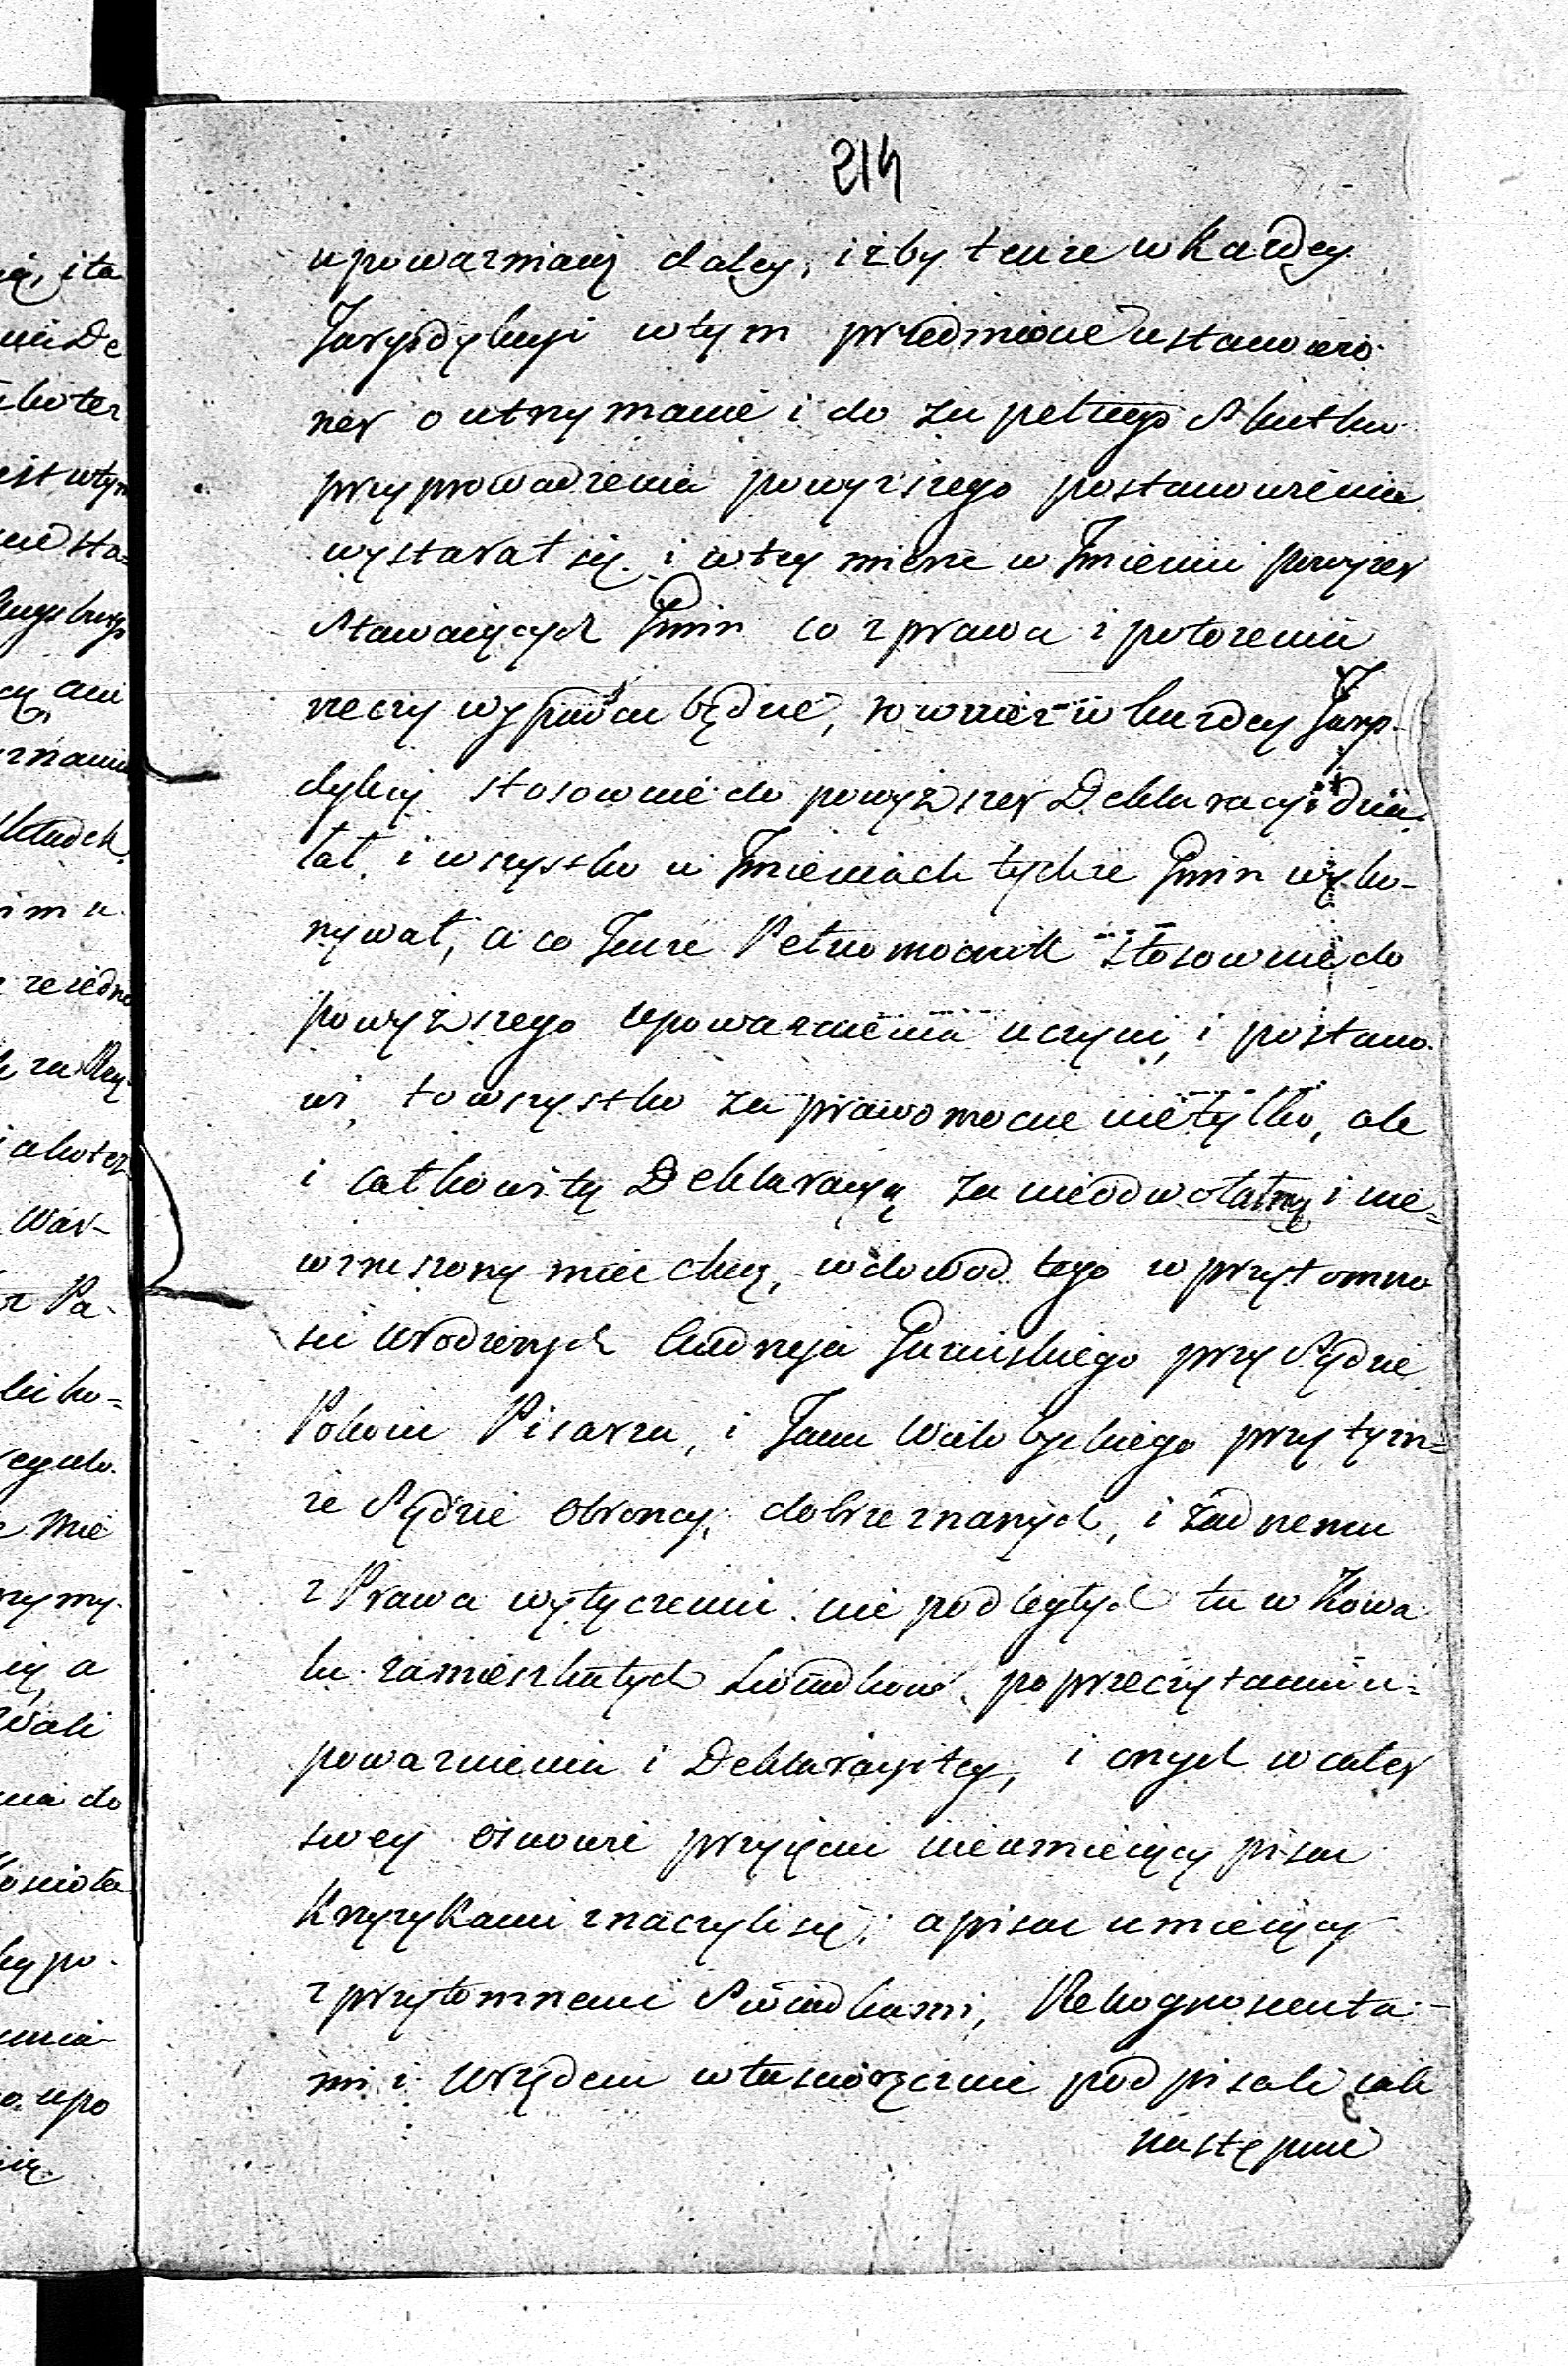 214
upoważniaią daley, iżby tenże w każdey
Jurysdykcyi w tym przedmiocie ustanowio
ney o utrzymanie i do zupełnego Skutku
przyprowadzenia powyższego postanowienia
wystarał się. i w tey mierze w Jmieniu powyżey
Stawaiących Gmin co z prawa i położenia
rzeczy wypadać będzie, rownież w każdey Jurys-
dykcyi stosownie do powyższey Deklaracyi dzia-
łał, i wszystko w Jmieniach tychże Gmin wyko-
nywał, a co Tenże Pełnomocnik stosownie do
powyższego upoważnienia uczyni, i postano-
wi, to wszystko za prawomocne nietylko, ale
i całkowitą Deklaracyą za nieodwołalną i nie=
wzruszoną mieć chcą, w dowod tego w przytomno
ści Urodzonych Andrzeja Gurnickiego przy Sądzie
Pokoiu Pisarza, i Jana Wielobyckiego przy tym=
że Sądzie Obroncy, dobrze znanych, i żadnemu
z Prawa wyłączeniu nie podległych tu w Kowa
lu zamieszkałych Swiadkow, po przeczytaniu u=
poważnienia i Deklaracyi tey, i onych w całey
swey osnowie przyięciu nieumieiący pisać
Krzyżykami znaczyli się; a pisać umieiący
z przytomnemi Swiadkami, Rekognoscenta-
mi i Urzędem własnoręcznie podpisali iak
następuie